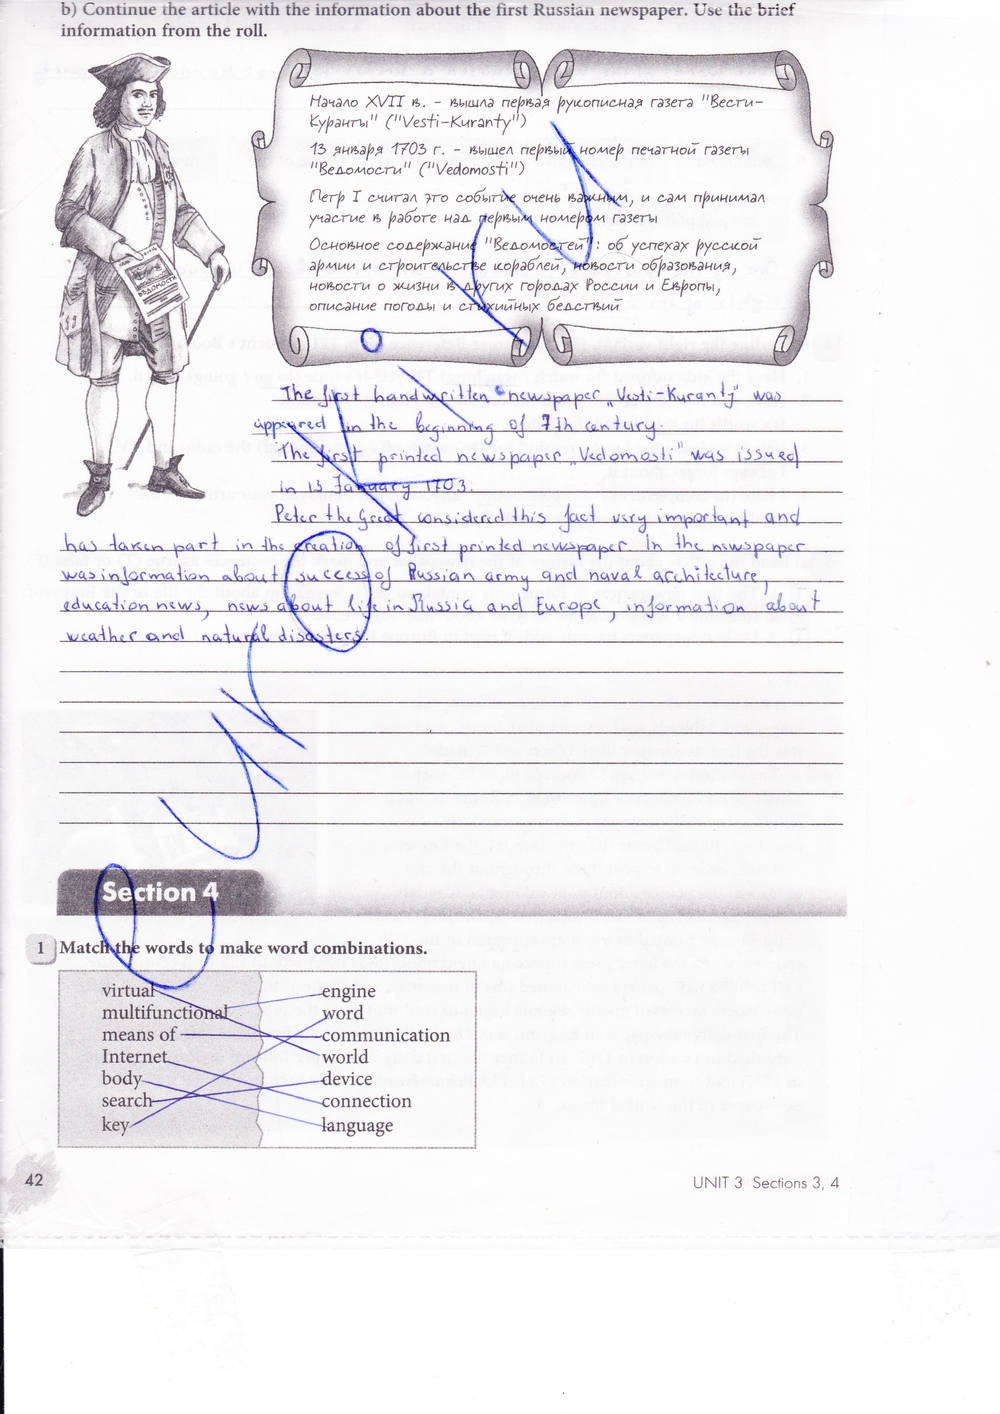 b) Continue the article with the information about the first Russian newspaper. Use the brief
information from the roll.
Начало XVII в. – вышла первая рукописная газета "Вести-
Куранты" ("Vesti-Kuranty")
13 января 1703 г. – вышел первый номер печатной газеты
"Ведомости" ("Vedomosti")
Петр I считал это событие очень важным, и сам принимал
участие в работе над первым номером газеты
Основное содержание "Ведомостей": об успехах русской
армии и строительстве кораблей, новости образования,
новости о жизни в других городах России и Европы,
описание погоды и стихийных бедствий
ВЕДОМОСТИ
The first handwritten newspaper „Vesti-Kuranty" was
appeared in the beginning of 7th century.
The first printed newspaper „Vedomosti" was issued
in 13 January 1703.
Peter the Great considered this fact very important and
has taken part in the creation of first printed newspaper. In the newspaper
was information about success of Russian army and naval architecture,
education news, news about life in Russia and Europe, information about
weather and natural disasters.
Section 4
1 Match the words to make word combinations.
virtual engine
multifunctional word
means of communication
Internet world
body device
search connection
key language
42 UNIT 3 Sections 3, 4